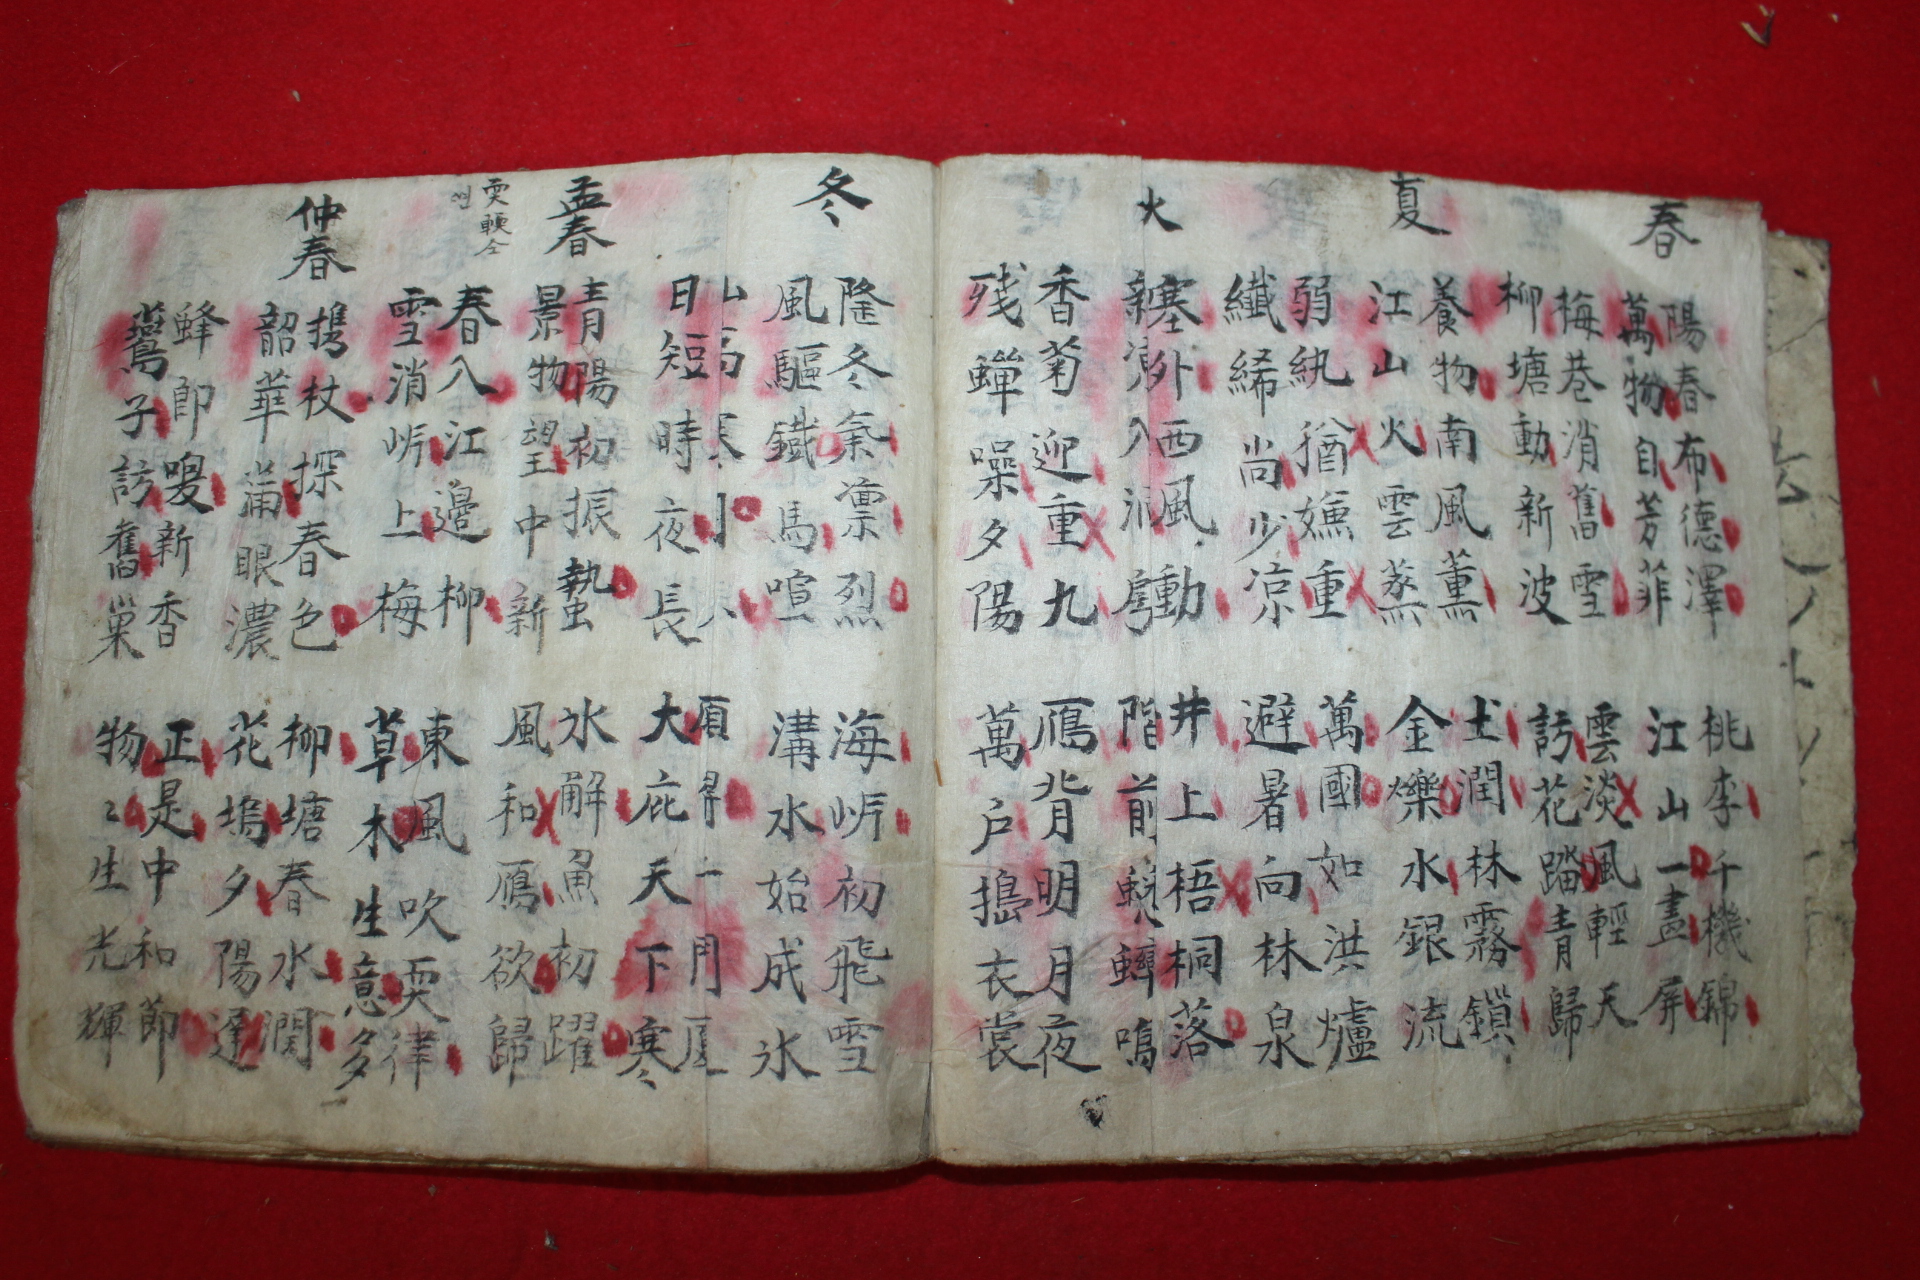 春
陽春布德澤
萬物自芳菲
桃李千機錦
江山一畵屏
梅巷消舊雪
柳塘動新波
雲淡風輕天
訪花踏青歸
夏
養物南風薰
江山火雲蒸
土潤林霧鎖
金爍水銀流
弱紈猶嫌重
纖絺尚少凉
萬國如洪爐
避暑向林泉
火
塞外西風動
新入
井上梧桐落
階前蟋蟀鳴
香菊迎重九
残蟬噪夕陽
鴈背明月夜
萬戶搗衣裳
冬
隆冬氣凛烈
風驅鐵馬喧
海岍初飛雪
溝水始成氷
山高
日短時夜長
一間厦
大庇天下寒
孟春
青陽初振蟄
景物望中新
氷解魚初躍
風和鴈欲歸
耎輭仝
연
春入江邊柳
雪消岍上梅
東風吹耎律
草木生意多
仲春
携杖探春色
韶華滿眼濃
柳塘春水濶
花塢夕陽遲
蜂郎嗅新香
鷰子訪舊巢
正是中和節
物〻生光輝